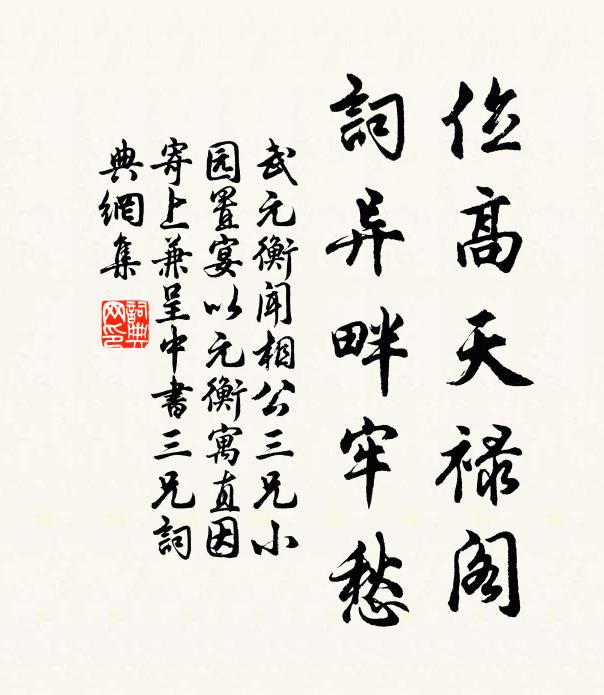 位高天禄阁
詞异畔牢愁
武元衡闻相公三兄小
园置宴以元衡寓直因
寄上兼呈中書三兄詞
典網集
詞典网印